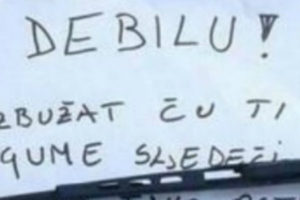 DEBILU!
ZBUŽAT ČU TI
GUME SLJEDEČI